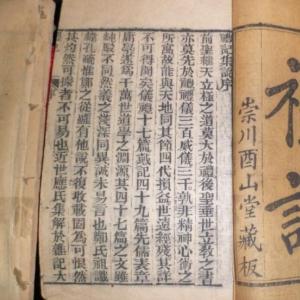 禮記
崇川酉山堂藏板
禮記集說序
前聖繼天立極之道莫大於禮後聖垂世立教之書
亦莫先於禮禮儀三百威儀三千孰非精神心術之
所寓故能與天地同其節四代損益世遠經殘其詳
不可得聞矣儀禮十七篇戴記四十九篇先儒表章
庸學遂爲千萬世道學之淵源其四十七篇之文雖
純駁不同然義之淺深同異誠未易言也鄭氏祖讖
緯孔疏惟鄭之從雖有他說不復收載固爲可恨然
其灼然可據者不可易也近世應氏集解於雜記大